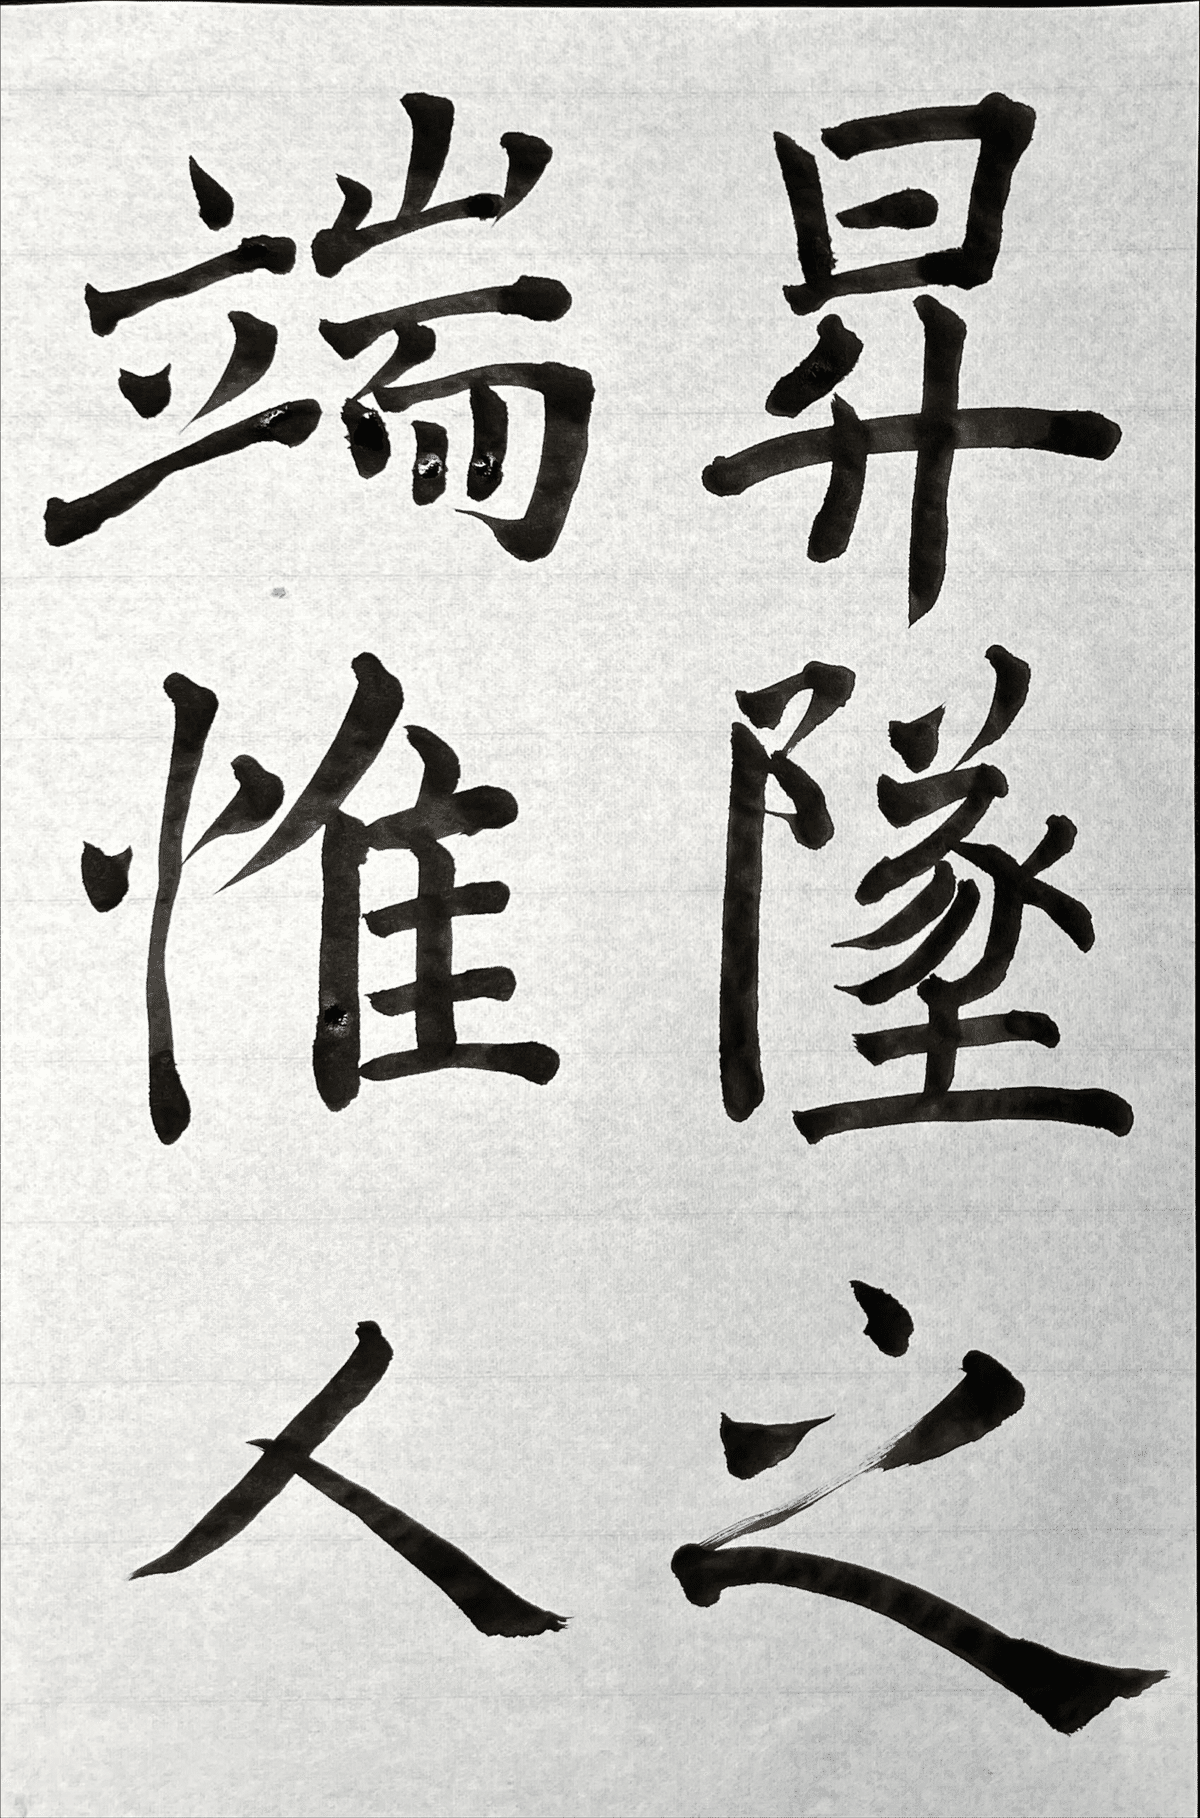 昇墜之
端惟人